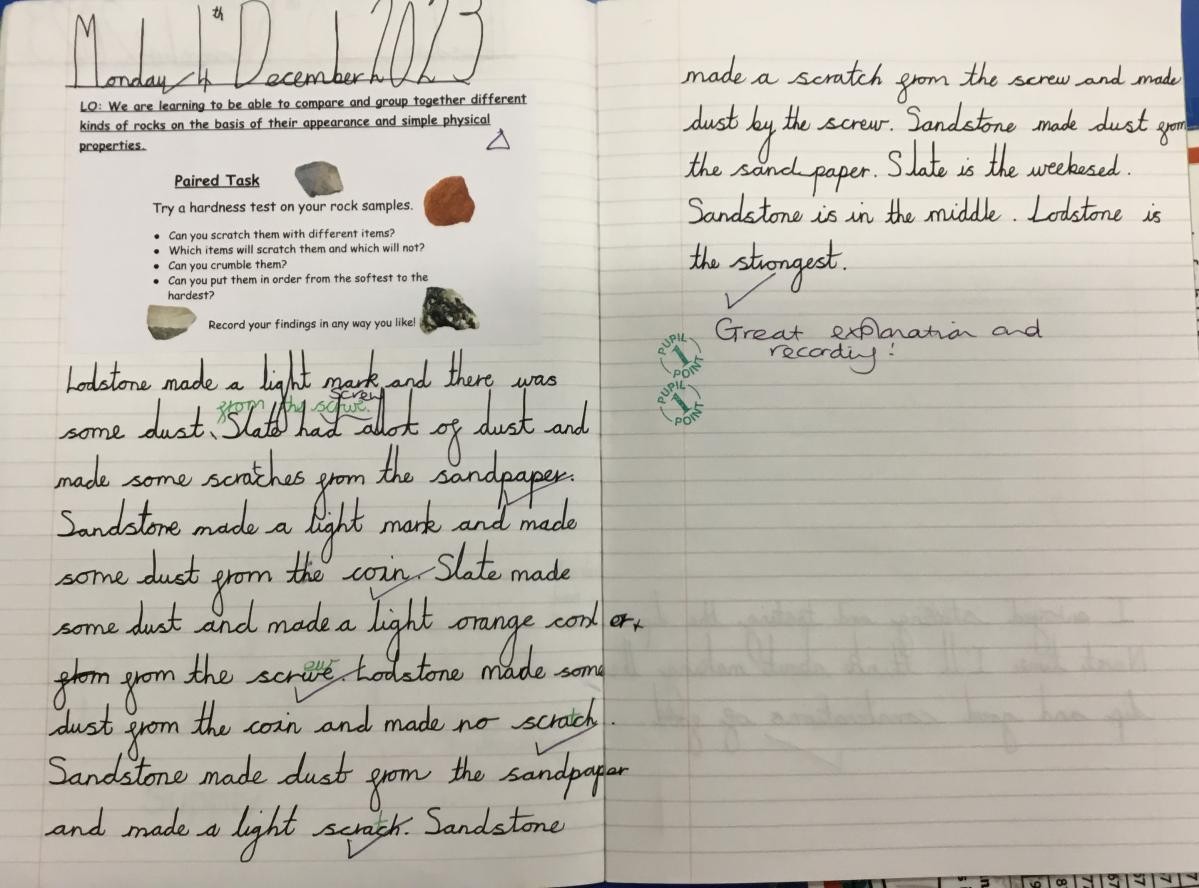 Monday 4th December 2023
LO: We are learning to be able to compare and group together different
kinds of rocks on the basis of their appearance and simple physical
properties.
Paired Task
Try a hardness test on your rock samples.
• Can you scratch them with different items?
• Which items will scratch them and which will not?
• Can you crumble them?
• Can you put them in order from the softest to the
hardest?
Record your findings in any way you like!
Lodstone made a light mark and there was
screw
from the scrwe.
some dust. Slate had allot of dust and
made some scratches from the sandpaper.
Sandstone made a light mark and made
some dust from the coin. Slate made
some dust and made a light orange
from the scrwe. Lodstone made some
dust from the coin and made no scratch.
Sandstone made dust from the sandpaper
and made a light scratch. Sandstone
made a scratch from the screw and made
dust by the screw. Sandstone made dust from
the sandpaper. Slate is the weekesed.
Sandstone is in the middle. Lodstone is
the strongest.
Great explanation and
recording!
PUPIL
1
POINT
PUPIL
1
POINT